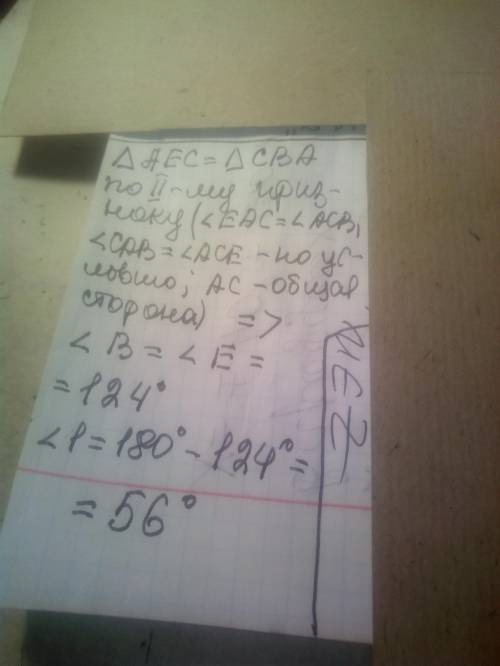 △ AEC = △ CBA
по II-му приз-
наку (∠EAC = ∠ACB,
∠CAB = ∠ACE - по ус-
ловию; AC - общая
сторона) =>
∠ B = ∠ E =
= 124°
∠1 = 180° - 124° =
= 56°